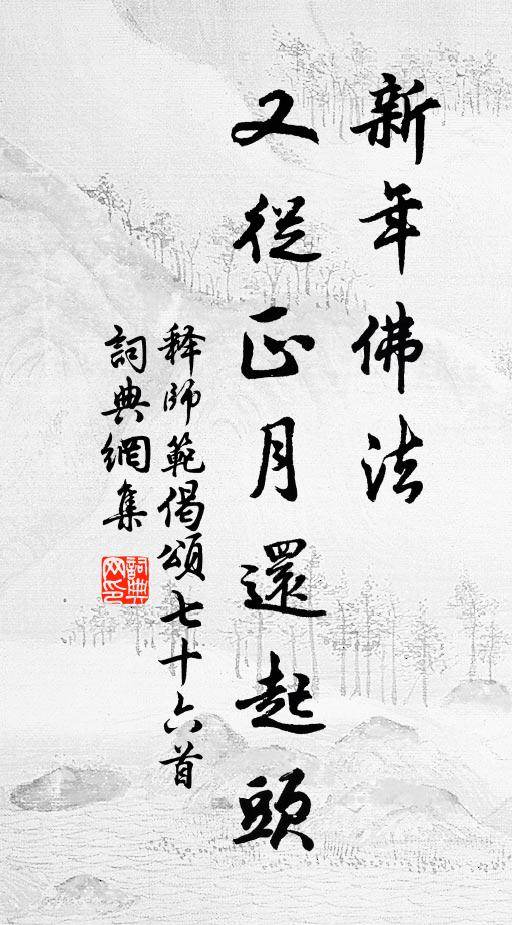 新年佛法
又從正月還起頭
释師範偈頌七十六首
詞典網集
詞典网印